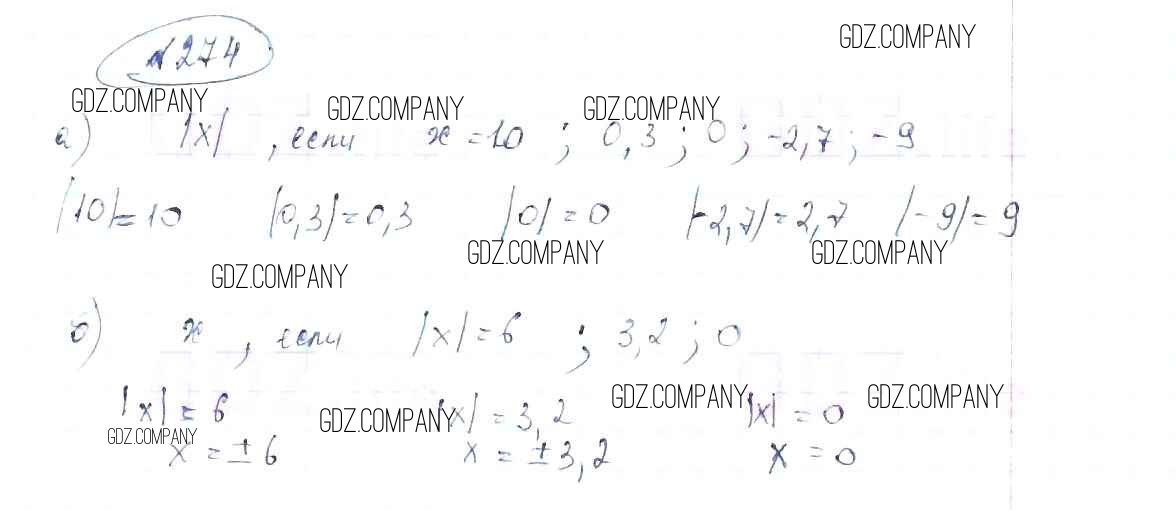 №274
GDZ.COMPANY
GDZ.COMPANY GDZ.COMPANY GDZ.COMPANY
а) |x| , если x = 10 ; 0,3 ; 0 ; -2,7 ; -9
|10|=10 |0,3|=0,3 |0|=0 |-2,7|=2,7 |-9|=9
GDZ.COMPANY GDZ.COMPANY
GDZ.COMPANY
б) x , если |x|=6 ; 3,2 ; 0
GDZ.COMPANY GDZ.COMPANY
|x| = 6 GDZ.COMPANY |x| = 3,2 |x| = 0
GDZ.COMPANY
x = ±6 x = ±3,2 x = 0